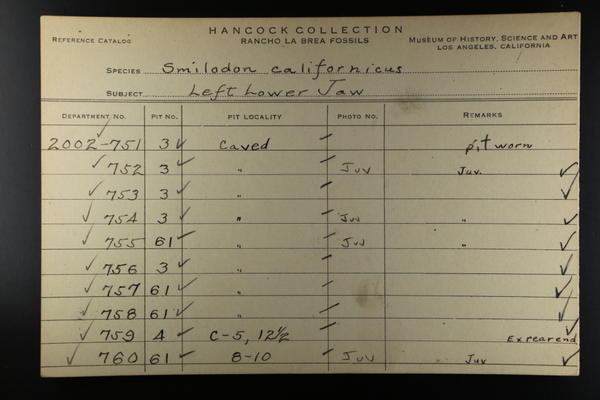 HANCOCK COLLECTION
REFERENCE CATALOG RANCHO LA BREA FOSSILS MUSEUM OF HISTORY, SCIENCE AND ART
LOS ANGELES, CALIFORNIA
SPECIES Smilodon californicus
SUBJECT Left Lower Jaw
DEPARTMENT NO. PIT NO. PIT LOCALITY PHOTO NO. REMARKS
2002-751 3 Caved pit worn
752 3 " Juv Juv.
753 3 "
754 3 " Juv "
755 61 " Juv "
756 3 "
757 61 "
758 61 "
759 4 C-5, 12½ Ex rear end
760 61 8-10 Juv Juv